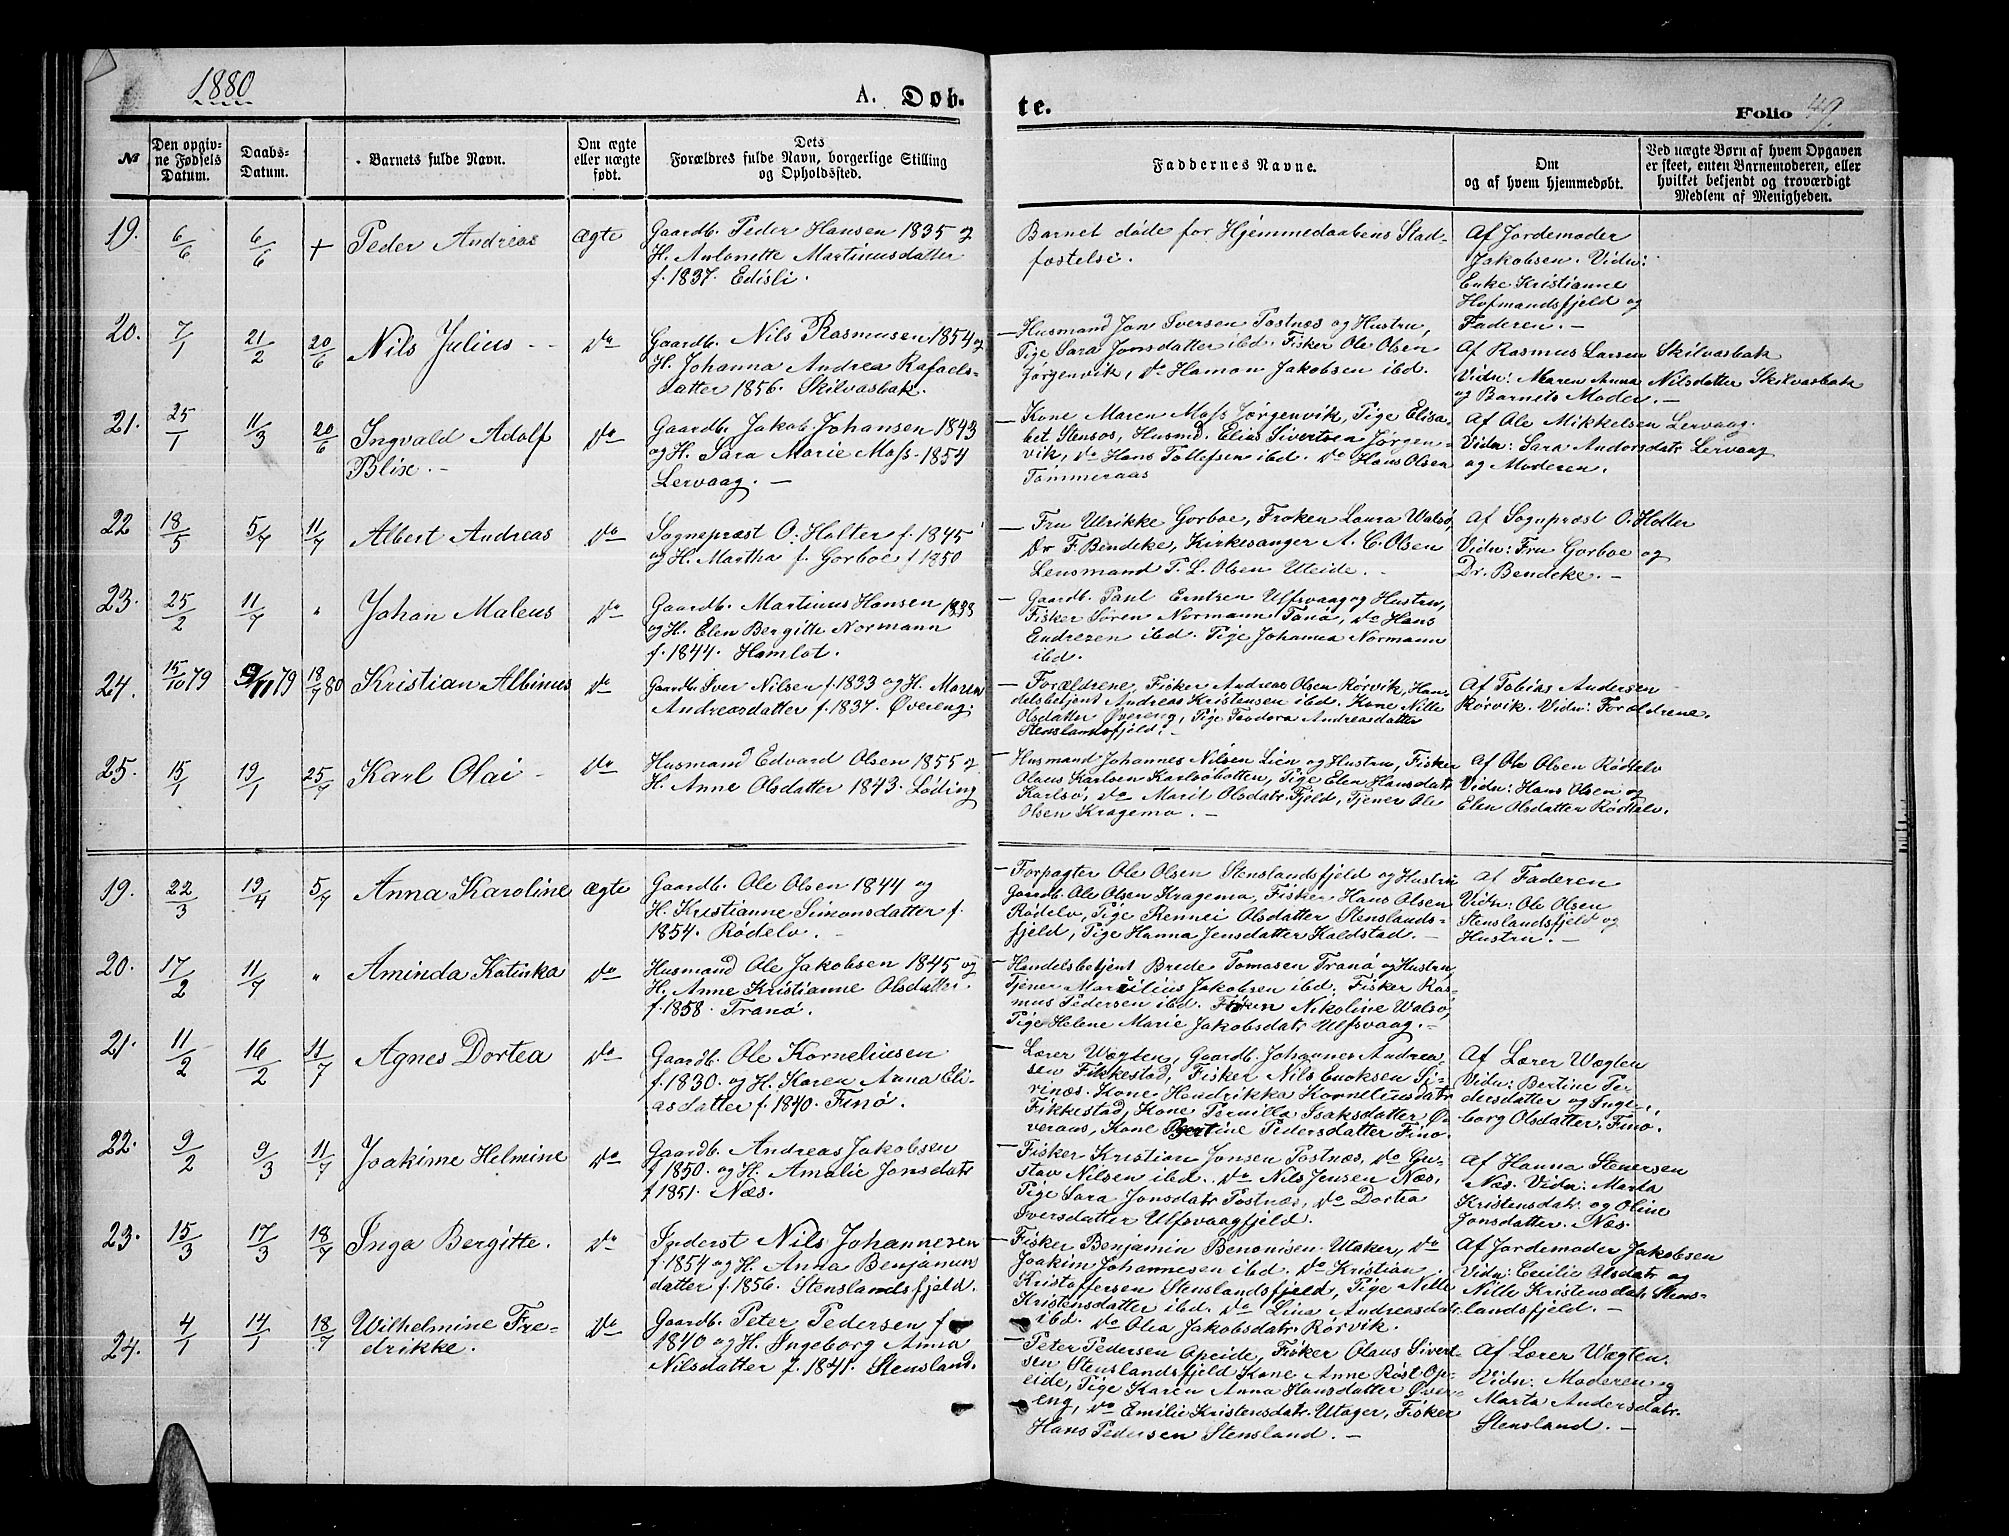 1880
A. Døb-
te.
Folio 49.
№
Den opgiv-
ne Fødsels
Datum.
Daabs-
Datum.
Barnets fulde Navn.
Om ægte
eller uægte
født.
Dets
Forældres fulde Navn, borgerlige Stilling
og Opholdssted.
Faddernes Navne.
Om
og af hvem hjemmedøbt.
Ved uægte Børn af hvem Opgaven
er skeet, enten Barnemoderen, eller
hvilket bekjendt og troværdigt
Medlem af Menigheden.
19. 6/6 6/6 + Peder Andreas Ægte
Gaardb. Peder Hansen 1835 og
H. Antonette Martinusdatter
f. 1837. Edisli.
Barnet døde før Hjemmedaabens Stad-
fæstelse.
Af Jordemoder
Jakobsen. Vidn:
Enke Kristianne
Hofmandsfjeld og
Faderen. —
20. 7/1 21/2 20/6 Nils Julius - - Do
Gaardb. Nils Rasmusen 1854 og
H. Johanna Andrea Rafaels-
datter 1856. Skilvasbak.
— Husmand Jon Iversen Postnæs og Hustru,
Pige Sara Jonsdatter ibd. Fisker Ole Olsen
Jørgenvik, Do Hamon Jakobsen ibd.
Af Rasmus Larsen Skilvasbak
Vidn: Maren Anna Nilsdatter Skilvasbak
og Barnets Moder. —
21. 25/1 11/3 20/6 Ingvald Adolf
Blix. — Do
Gaardb. Jakob Johansen 1843
og H. Sara Marie Moss. 1854
Lervaag. —
— Kone Maren Moss Jørgenvik, Pige Elisa-
bet Stensos, Husmd. Elias Sivertsen Jørgen-
vik, Do Hans Tollefsen ibd. Do Hans Olsen
Tømmeraas
Af Ole Mikkelsen Lervaag.
Vidn: Sara Andorsdatr Lervaag
og Moderen.
22 18/5 5/7 11/7 Albert Andreas Do
Sognepræst O. Holter f. 1845
og H. Martha f. Gorboe f 1850
— Fru Ulrikke Gorboe, Frøken Laura Walsø,
Dr F. Bendeke, Kirkesanger A. C. Olsen
Lensmand P. L. Olsen Uteide. —
Af Sognpræst O. Holter
Vidn: Fru Gorboe og
Dr. Bendeke. —
23. 25/2 11/7 " Johan Maleus Do
Gaardb. Martinus Hansen 1833
og H. Elen Bergitte Normann
f. 1844. Hamlot.
— Gaardb. Paul Erntsen Ulfsvaag og Hustru,
Fisker Søren Normann Tanø, Do Hans
Endresen ibd. Pige Johanna Normann
ibd.
24. 15/10 79 9/11 79 18/7 80 Kristian Albinus Do
Gaardb. Iver Nilsen f. 1833 og H. Maren
Andreasdatter f. 1837. Øvereng.
— Forældrene, Fisker Andreas Olsen Rørvik, Han-
delsbetjent Andreas Kristensen ibd. Kone Nille
Olsdatter Øvereng, Pige Teodora Andreasdatter
Stenslandsfjeld.
Af Tobias Andersen
Rørvik. Vidn: Forældrene.
25. 15/1 19/1 25/7 Karl Olai - Do
Husmand Edvard Olsen 1855 og
H. Anne Olsdatter 1843. Løding
— Husmand Johannes Nilsen Lien og Hustru, Fisker
Olaus Karlsen Karlsøbotten, Pige Elen Hansdatr
Karlsø, Do Marit Olsdatr. Fjeld, Tjener Ole
Olsen Kragemo. —
Af Ole Olsen Rødelv
Vidn: Hans Olsen og
Elen Olsdatter Rødelv.
19. 22/3 19/4 5/7 Anna Karoline Ægte
Gaardb. Ole Olsen 1844 og
H. Kristianne Simonsdatter f.
1854. Rødelv. —
— Forpagter Ole Olsen Stenslandsfjeld og Hustru
Gaardb. Ole Olsen Kragemo, Fisker Hans Olsen
Rødelv, Pige Rennei Olsdatter Stenslands-
fjeld, Pige Hanna Jensdatter Kaldstad. —
Af Faderen
Vidn: Ole Olsen
Stenslandsfjeld og
Hustru. —
20. 17/2 11/7 " Aminda Katinka Do
Husmand Ole Jakobsen 1845 og
H. Anne Kristianne Olsdatter.
f. 1858. Tranø.
— Handelsbetjent Brede Tomasen Tranø og Hustru,
Tjener Marcilius Jakobsen ibd. Fisker Ras-
mus Pedersen ibd. Frøken Nikoline Walsø,
Pige Helene Marie Jakobsdatr Ulfsvaag. —
21. 11/2 16/2 11/7 Agnes Dortea Do
Gaardb. Ole Korneliusen
f. 1830. og H. Karen Anna Eli-
asdatter f. 1840. Finø.
— Lærer Wægten, Gaardb. Johannes Andrea-
sen Fikkestad, Fisker Nils Enoksen Si-
rinæs. Kone Hendrikka Korneliusdatr
Fikkestad, Kone Pernilla Isaksdatter Ø-
veraas, Kone Bertine Pedersdatter Finø.
Af Lærer Wægten
Vidn: Bertine Pe-
dersdatter og Inge-
borg Olsdatter, Finø.
22. 9/2 9/3 11/7 Joakime Helmine Do
Gaardb. Andreas Jakobsen
f 1850. og H. Amalie Jonsdatr
f 1851. Næs.
— Fisker Kristian Jonsen Postnæs, Do Gu-
stav Nilsen ibd. Do Nils Jensen Næs,
Pige Sara Jonsdatr Postnæs, Do Dortea
Iversdatter Ulfsvaagfjeld.
Af Hanna Stenersen
Næs. Vidn: Marta
Kristensdatr. og Oline
Jonsdatter. Næs.
23. 15/3 17/3 18/7 Inga Bergitte. Do
Inderst Nils Johannesen
f. 1854 og H. Anna Benjamins
datter f. 1856. Stenslandsfjeld.
— Fisker Benjamin Benonisen Utaker, Do
Joakim Johannesen ibd. Do Kristian
Kristoffersen Stenslandsfjeld, Pige Nille
Kristensdatter ibd. Do Lina Andreasdatr
ibd. Do Olea Jakobsdatr. Rørvik.
Af Jordemoder Jakobsen
Vidn: Cecilie Olsdatr og
Nille Kristensdatr. Stens-
landsfjeld. —
24. 4/1 14/1 18/7 Wilhelmine Fre-
drikke. Do
Gaardb. Peter Pedersen f.
1840 og H. Ingeborg Anna
Nilsdatter f. 1841. Stensland.
— Peter Pedersen Opeide, Fisker Olaus Sivert-
sen Stenslandsfjeld Kone Anne Røst Op-
eide, Pige Karen Anna Hansdatter Øver-
eng, Do Emilie Kristensdatr. Utager, Fisker
Hans Pedersen Stensland. —
Af Lærer Wægten.
Vidn: Moderen og
Marta Andersdatr.
Stensland. —